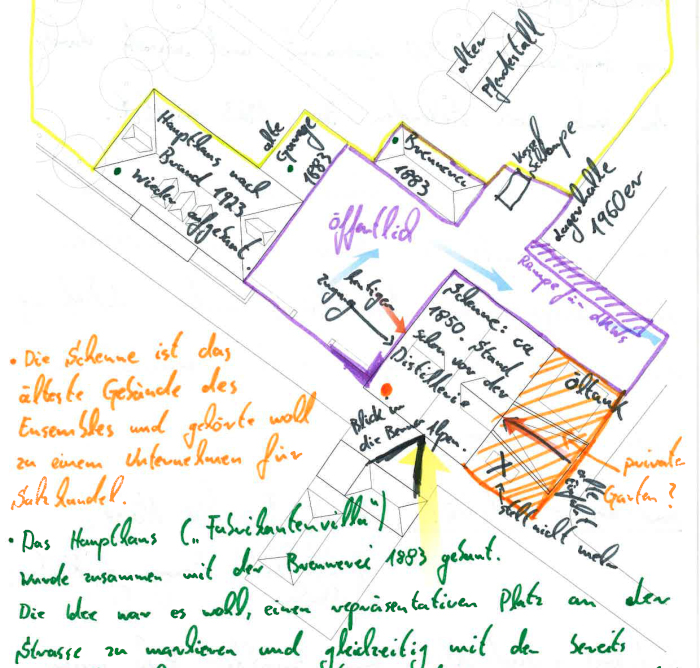 alter
Pferdestall
Haupthaus nach
Brand 1923
wieder aufgebaut.
alte
Garage
1883
Brennerei
1883
Rampe
Lagerhalle
1960er
öffentlich
Rampe für
heutiger
Zugang
Scheune: ca
1850. Stand
schon vor der
Distillerie
Öltank
Blick in
die Berner Alpen.
private
Garten?
steht nicht mehr
• Die Scheune ist das
älteste Gebäude des
Ensembles und gehörte wohl
zu einem Unternehmen für
Salzhandel.
• Das Haupthaus („Fabrikantenvilla")
wurde zusammen mit der Brennerei 1883 gebaut.
Die Idee war es wohl, einen repräsentativen Platz an der
Strasse zu markieren und gleichzeitig mit den bereits